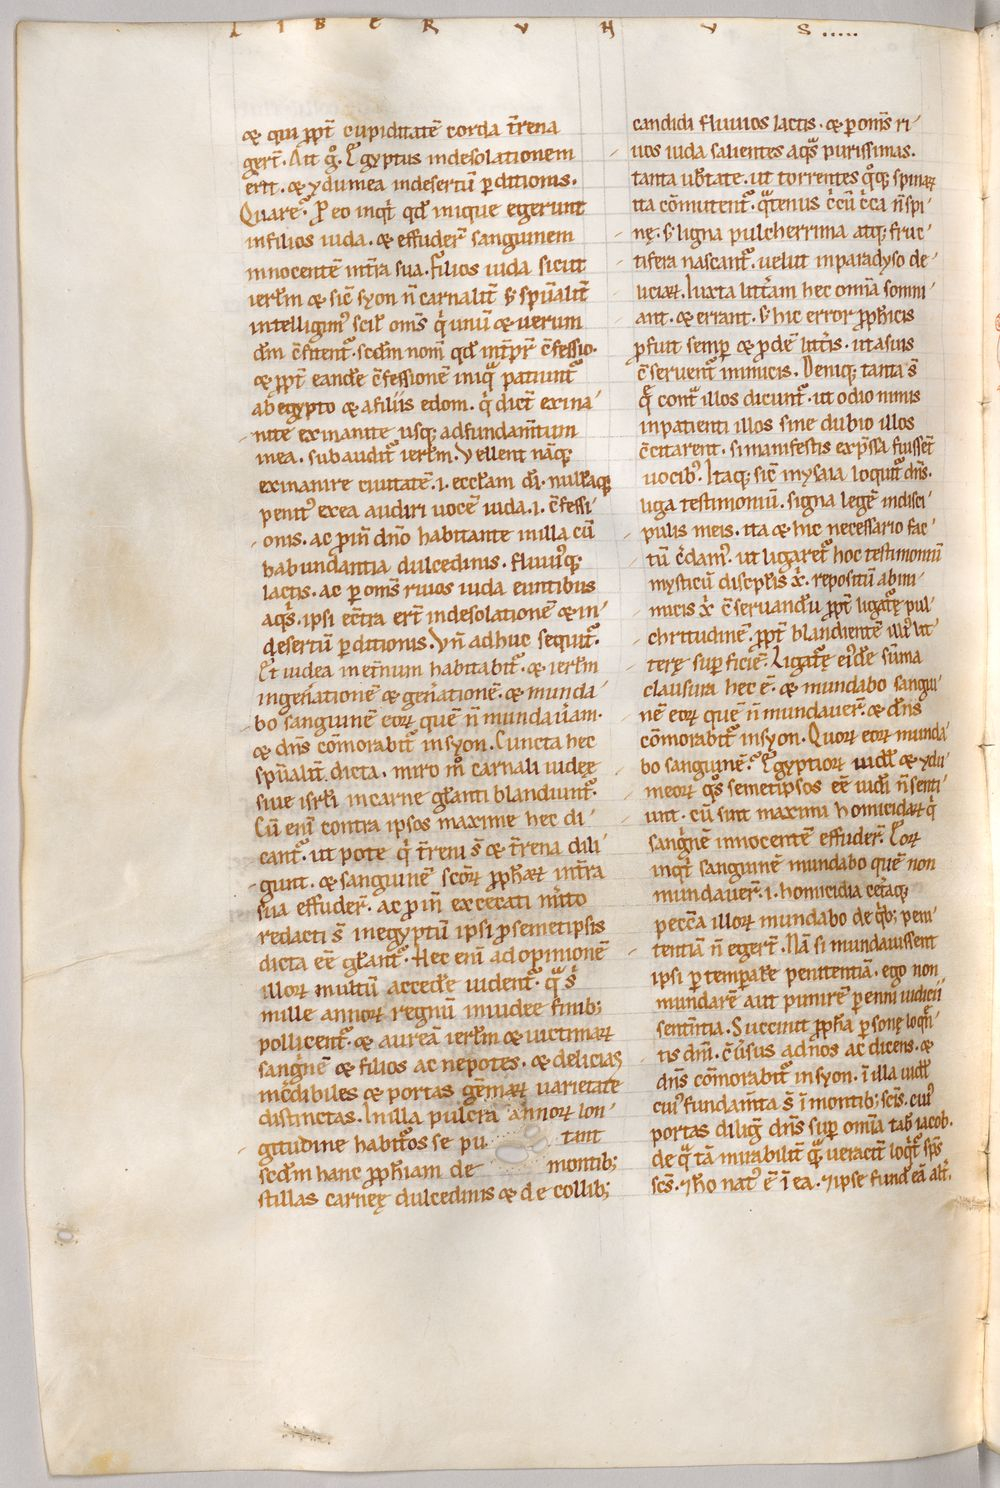 LIBER VNVS.....
& qui ꝓpt̄ cupiditatē corda t̄rena
gert̄. Ait g̊. Egyptus indesolationem
erit. & ydumea indesertū ꝑditionis.
Quare? Pro eo inqͥt qd̄ inique egerunt
infilios iuda. & effuder̄ sanguinem
innocentē int̄ra sua. Filios iuda sicut
ierl̄m & sic̄ syon n̄ carnalit̄ s̓ sp̄ualit̄
intelligim᾽ scil̓ om̄s qͥ unū & uerum
dm̄ c̄fitent̄. scdm̄ nom̄ qd̄ int̄p̄r c̄fessio.
& ꝓpt̄ eandē c̄fessionē iniqͣ patiunt̄
abegypto & afiliis edom. qͥ dict̄ exina-
nite exinanite usq; adfundam̄tum
inea. subaudit̄ ierl̄m. Vellent nāq;
exinanire ciuitatē .i. eccl̄am dī. nullāq;
penit᾽ exea audiri uocē iuda .i. c̄fessi-
onis. ac proin̄ dn̄o habitante inilla cū
habundantia dulcedinis. fluuiisq;
lactis. ac ꝑ om̄s riuos iuda euntibus
aqͥs. ipsi ec̄tra ert̄ indesolationē & in-
desertū ꝑditionis. Vn̄ adhuc sequit̄.
Et iudea inet̄num habitabit̄. & ierl̄m
ingen̄ationē & gen̄ationē. & munda-
bo sanguinē eoꝝ quē n̄ mundaūam.
& dn̄s cōmorabit̄ insyon. Cuncta hec
sp̄ualit̄ dicta. miro m̊ carnali iudeę
siue isrl̄i incarne gl̄anti blandiunt̄.
Cū enī contra ipsos maxime hec di-
cant̄. ut pote qͥ t̄reni s̄ & t̄rena dili-
gunt. & sanguinē scōꝝ ꝓph̄aꝝ int̄ra
sua effuder̄. ac proin̄ excecati m̄ito
redacti s̄ inegyptū ipsi ꝓsemetipsis
dicta eē gl̄ant̄. Hec enī ad opinionē
illoꝝ multū accedere uident̄. qͣ sͥ
mille annoꝝ regnū iniudee finib;
pollicent̄. & aureā ierl̄m & uictimaꝝ
sangͥnē & filios ac nepotes. & delicias
inc̄dibiles & portas gēmaꝝ uarietate
distinctas. Inilla pulcra annoꝝ lon-
gitudine habit̄os se pu tant
scdm̄ hanc ꝓph̄iam de montib;
stillas carneę dulcedinis & de collib;
candidi fluuios lactis. & ꝑ om̄s ri-
uos iuda salientes aqͣs purissimas.
tanta ub̄tate. ut torrentes qͦq; spinaꝝ
ita cōmutent̄. qͣtenus c̄cū c̄ca n̄ spi-
nę. s̓ ligna pulcherrima atq; fruc-
tifera nascant̄. uelut inparadyso de-
liciaꝝ. Iuxta litt̄am hec omīa somni-
ant. & errant. s̓ hic error ꝓph̄icis
ꝓfuit semꝑ & ꝓdē litt̄is. ut a suis
c̄seruent̄ inimicis. Deniq; tanta s̄
qͣ cont̄ illos dicunt̄. ut odio nimis
inpatienti illos sine dubio illos
c̄citarent. si manifestis exp̄ssa fuissēt
uocib᾽. Itaq; sic̄ inysaia loquit̄ dn̄s.
liga testimoniū. signa legē indisci-
pulis meis. ita & hic necessario fac-
tū c̄dam᾽. ut ligaret̄ hoc testimoniū
mysticū discipl̄is x̄. repositū ab ini-
micis x̄ c̄seruandū ꝓpt̄ ligatę pul-
chritudinē. ꝓpt̄ blandientē illi᾽ lit-
terę suꝑficiē. Ligatę ei᾽dē sūma
clausura hec ē. & mundabo sangui-
nē eoꝝ quē n̄ mundauer̄. & dn̄s
cōmorabit̄ insyon. Quoꝝ eoꝝ munda-
bo sanguinē? Egyptioꝝ uidl̄ & ydu-
meoꝝ qͦs semetipsos eē iudī n̄ senti-
unt. cū sint maximi homicidaꝝ qͥ
sangͥnē innocentē effuder̄. Eoꝝ
inqͥt sanguinē mundabo quē non
mundauer̄ .i. homicidia cet̄aq;
peccā illoꝝ mundabo de qͥb; peni-
tentiā n̄ egert̄. Nā si mundauissent
ipsi ꝑ temporale penitentiā. ego non
mundarē aut punirē ꝑenni iudicii
sentn̄tia. Succinit ꝓph̄a ꝑsonę loqn̄-
tis dnī. c̄ūsus adnos ac dicens. &
dn̄s cōmorabit̄ insyon. ī illa uidl̄
cui᾽ fundam̄ta s̄ ī montib; scīs. cui᾽
portas diligͥ dn̄s suꝑ omīa tab̄ iacob.
de qͣ tā mirabilit̄ qͣ ueracit̄ loqͥt̄ sps̄
scs̄. ⁊ ho nat᾽ ē ī ea. ⁊ ipse fund̄ eā alt̄.